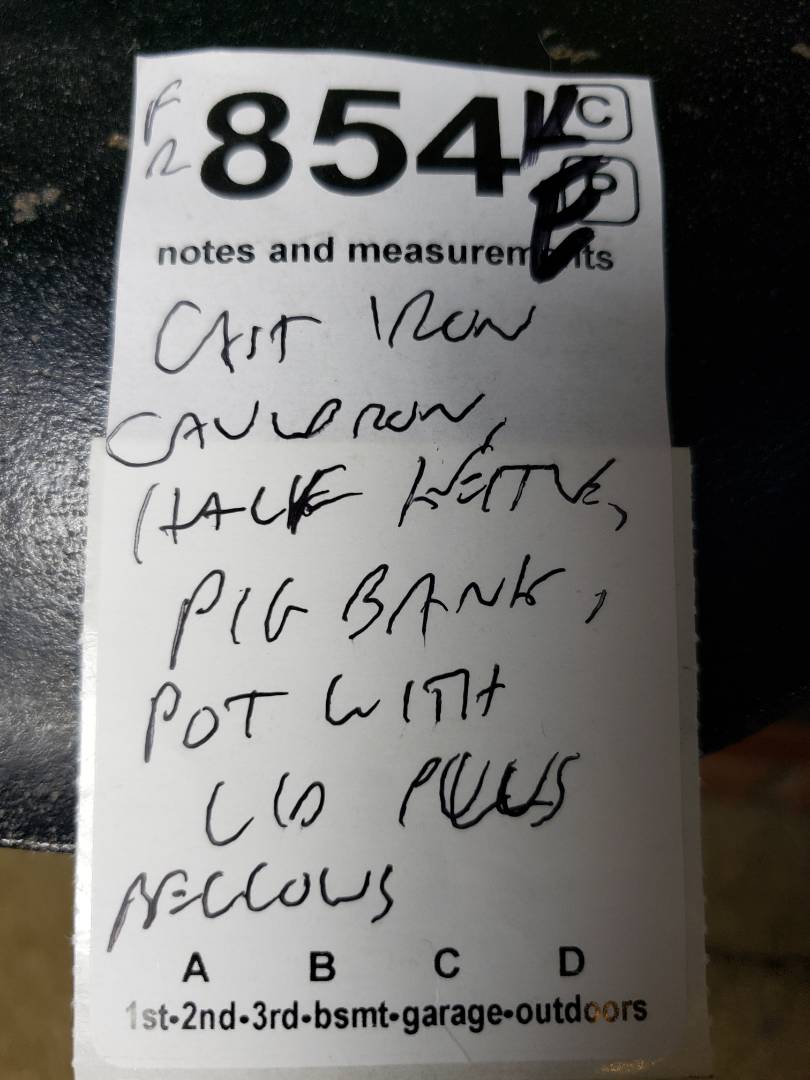 F 854 K C
R E P
notes and measurements
CAST IRON
CAULDRON,
HALF KETTLE,
PIG BANK,
POT WITH
LID PLUS
BELLOWS
A B C D
1st•2nd•3rd•bsmt•garage•outdoors